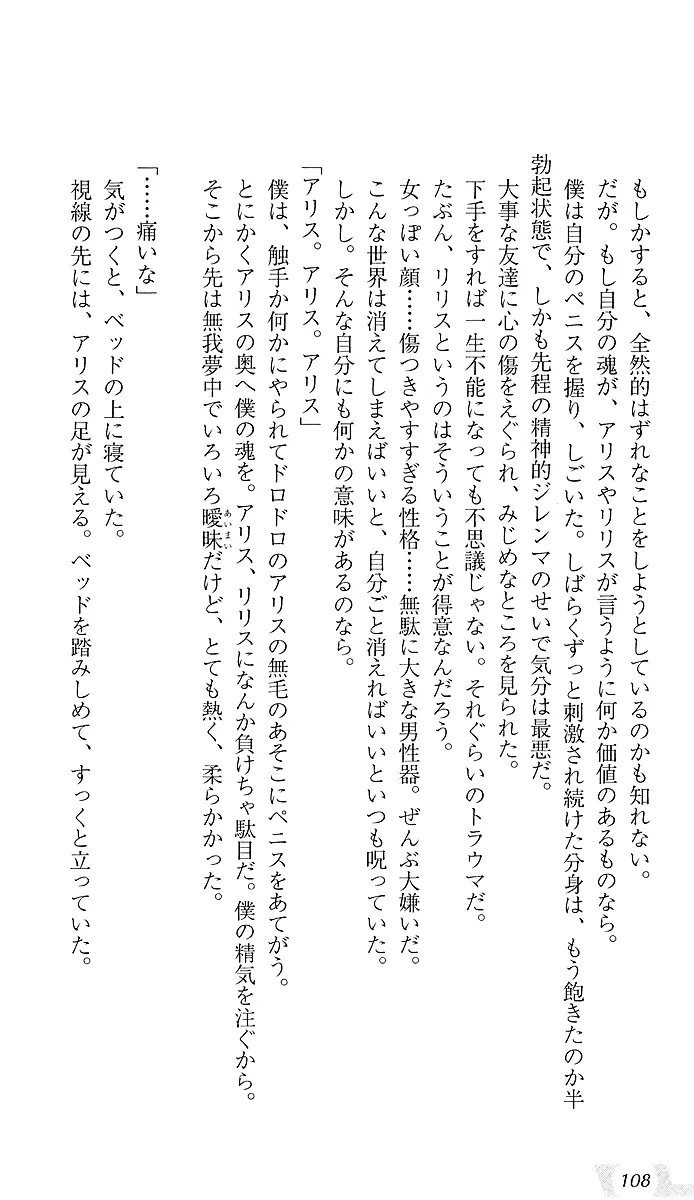 もしかすると、全然的はずれなことをしようとしているのかも知れない。
だが。もし自分の魂が、アリスやリリスが言うように何か価値のあるものなら。
僕は自分のペニスを握り、しごいた。しばらくずっと刺激され続けた分身は、もう飽きたのか半
勃起状態で、しかも先程の精神的ジレンマのせいで気分は最悪だ。
大事な友達に心の傷をえぐられ、みじめなところを見られた。
下手をすれば一生不能になっても不思議じゃない。それぐらいのトラウマだ。
たぶん、リリスというのはそういうことが得意なんだろう。
女っぽい顔……傷つきやすすぎる性格……無駄に大きな男性器。ぜんぶ大嫌いだ。
こんな世界は消えてしまえばいいと、自分ごと消えればいいといつも呪っていた。
しかし。そんな自分にも何かの意味があるのなら。
「アリス。アリス。アリス」
僕は、触手か何かにやられてドロドロのアリスの無毛のあそこにペニスをあてがう。
とにかくアリスの奥へ僕の魂を。アリス、リリスになんか負けちゃ駄目だ。僕の精気を注ぐから。
そこから先は無我夢中でいろいろ曖昧だけど、とても熱く、柔らかかった。
あいまい
「……痛いな」
気がつくと、ベッドの上に寝ていた。
視線の先には、アリスの足が見える。ベッドを踏みしめて、すっくと立っていた。
108